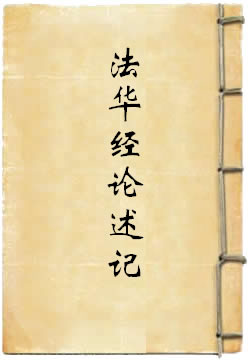 法华经论述记